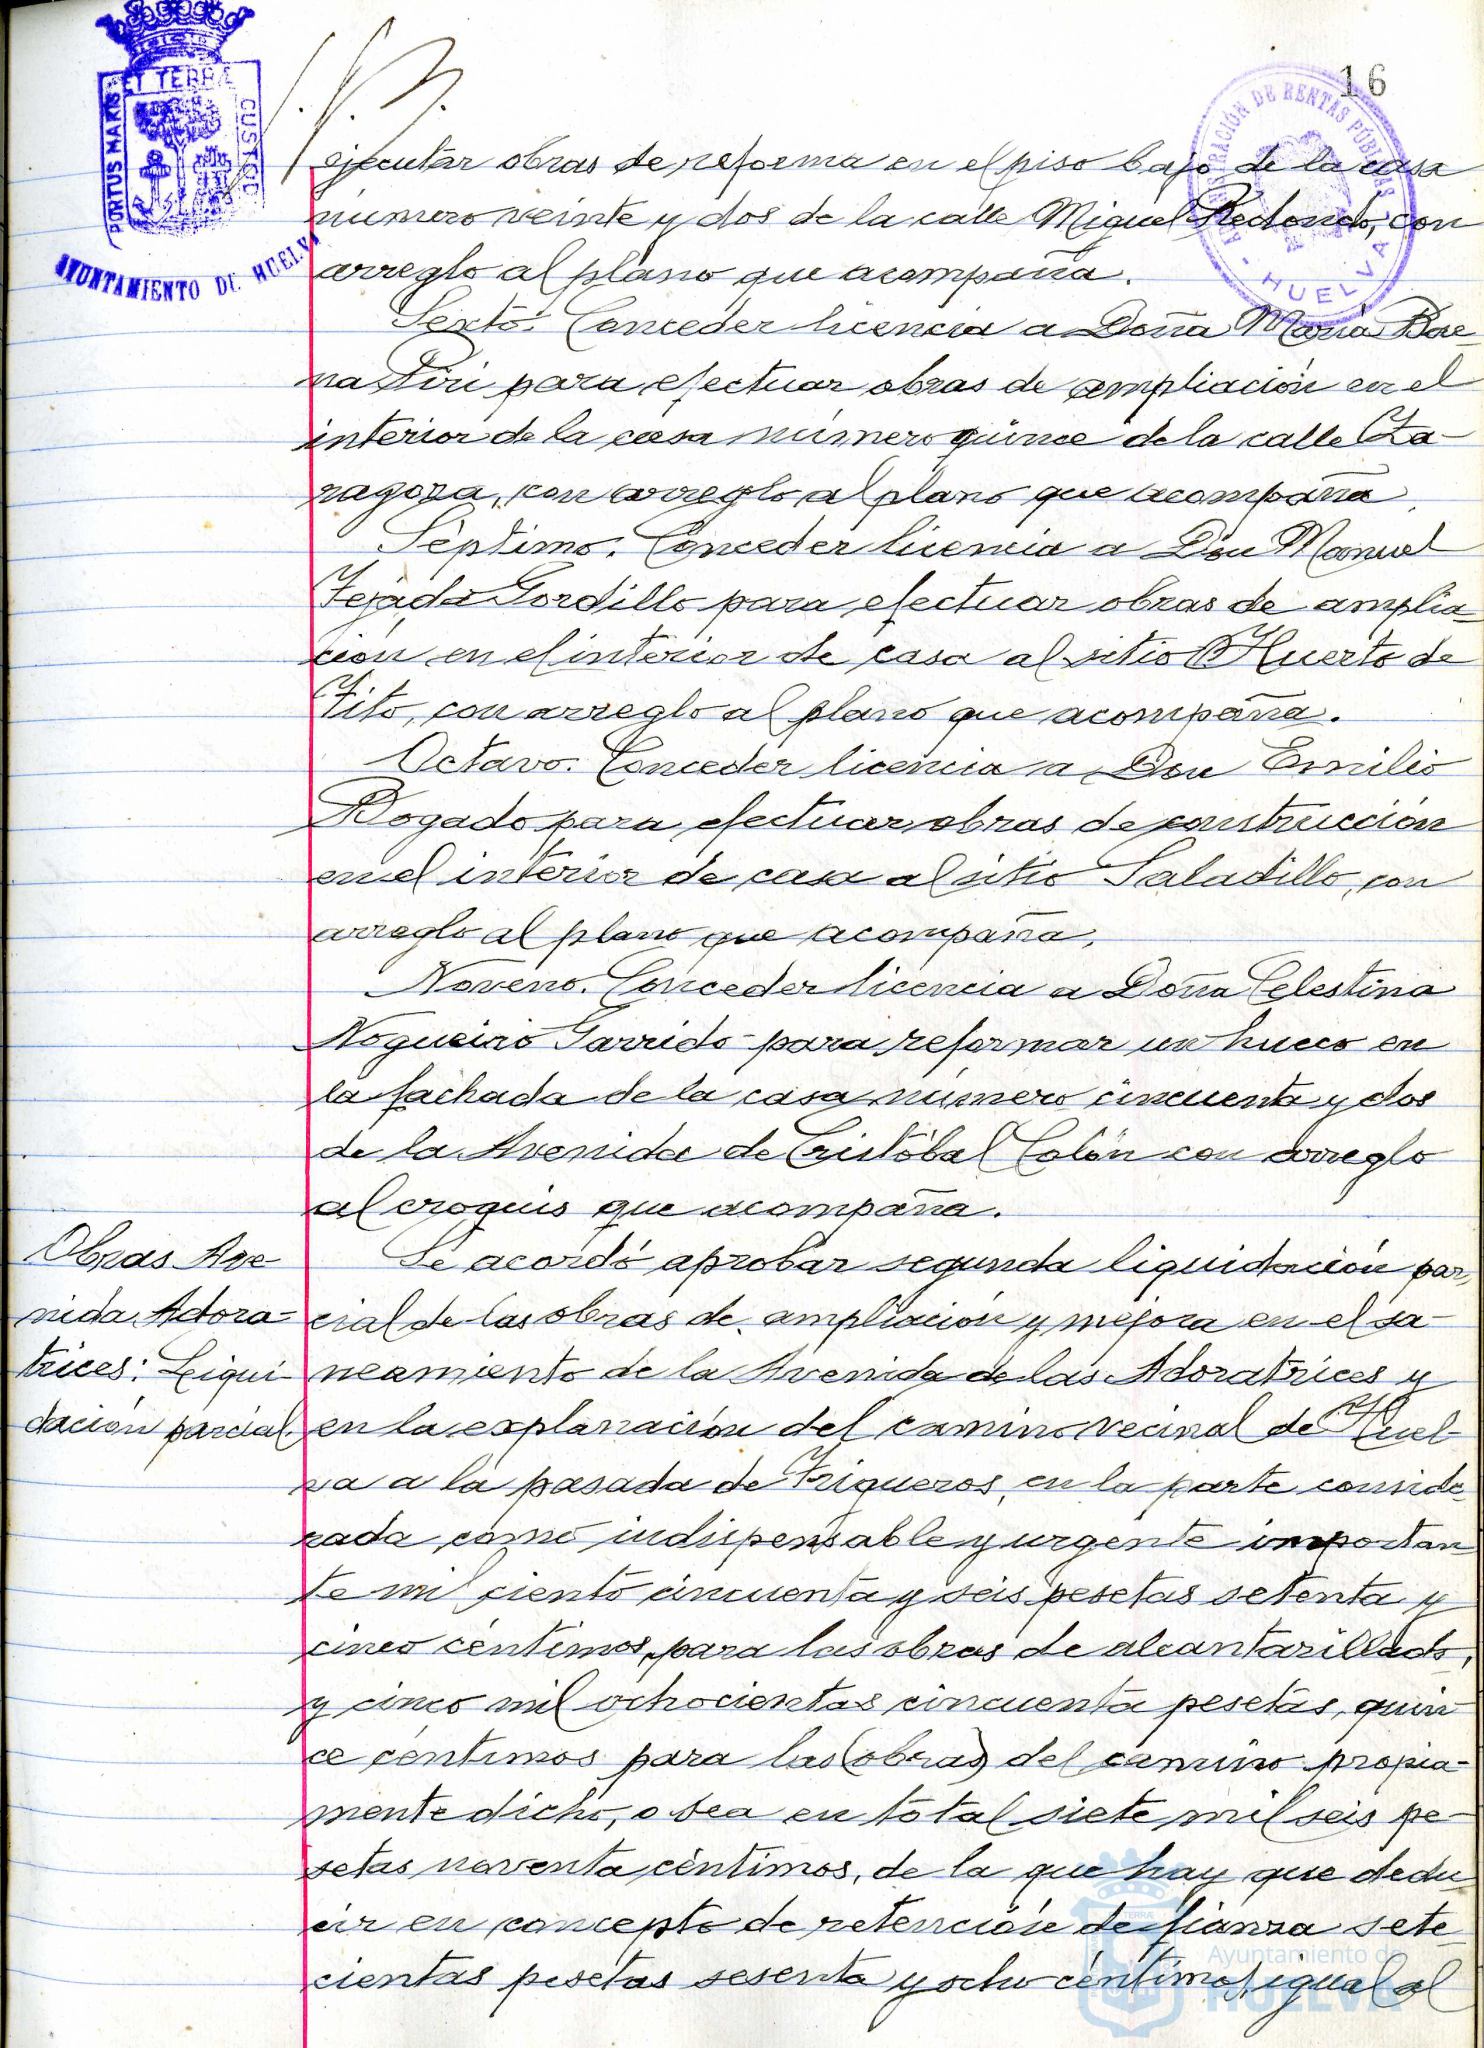 16
PORTUS MARIS ET TERRÆ CUSTOD
AYUNTAMIENTO DE HUELVA
ADMINISTRACIÓN DE RENTAS PÚBLICAS
- HUELVA -
ejecutar obras de reforma en el piso bajo de la casa
número veinte y dos de la calle Miguel Redondo, con
arreglo al plano que acompaña.
Sexto. Conceder licencia a Doña María Bae-
na Piri para efectuar obras de ampliación en el
interior de la casa número quince de la calle Za-
ragoza, con arreglo al plano que acompaña.
Séptimo. Conceder licencia a Don Manuel
Tejada Gordillo para efectuar obras de amplia-
ción en el interior de casa al sitio Huerto de
Tito, con arreglo al plano que acompaña.
Octavo. Conceder licencia a Don Emilio
Bogado para efectuar obras de construcción
en el interior de casa al sitio Saladillo, con
arreglo al plano que acompaña.
Noveno. Conceder licencia a Doña Celestina
Nogueiro Garrido para reformar un hueco en
la fachada de la casa número cincuenta y dos
de la Avenida de Cristóbal Colón con arreglo
al croquis que acompaña.
Obras Ave-
nida Adora-
trices: Liqui
dación parcial.
Se acordó aprobar segunda liquidación par-
cial de las obras de ampliación y mejora en el sa-
neamiento de la Avenida de las Adoratrices y
en la explanación del camino vecinal de Huel-
va a la pasada de Trigueros, en la parte conside-
rada como indispensable y urgente importan-
te mil ciento cincuenta y seis pesetas setenta y
cinco céntimos, para las obras de alcantarillado,
y cinco mil ochocientas cincuenta pesetas, quin-
ce céntimos para las obras del camino propia-
mente dicho, o sea en total siete mil seis pe-
setas noventa céntimos, de la que hay que dedu-
cir en concepto de retención de fianza sete-
cientas pesetas sesenta y ocho céntimos, igual al
Ayuntamiento de
HUELVA